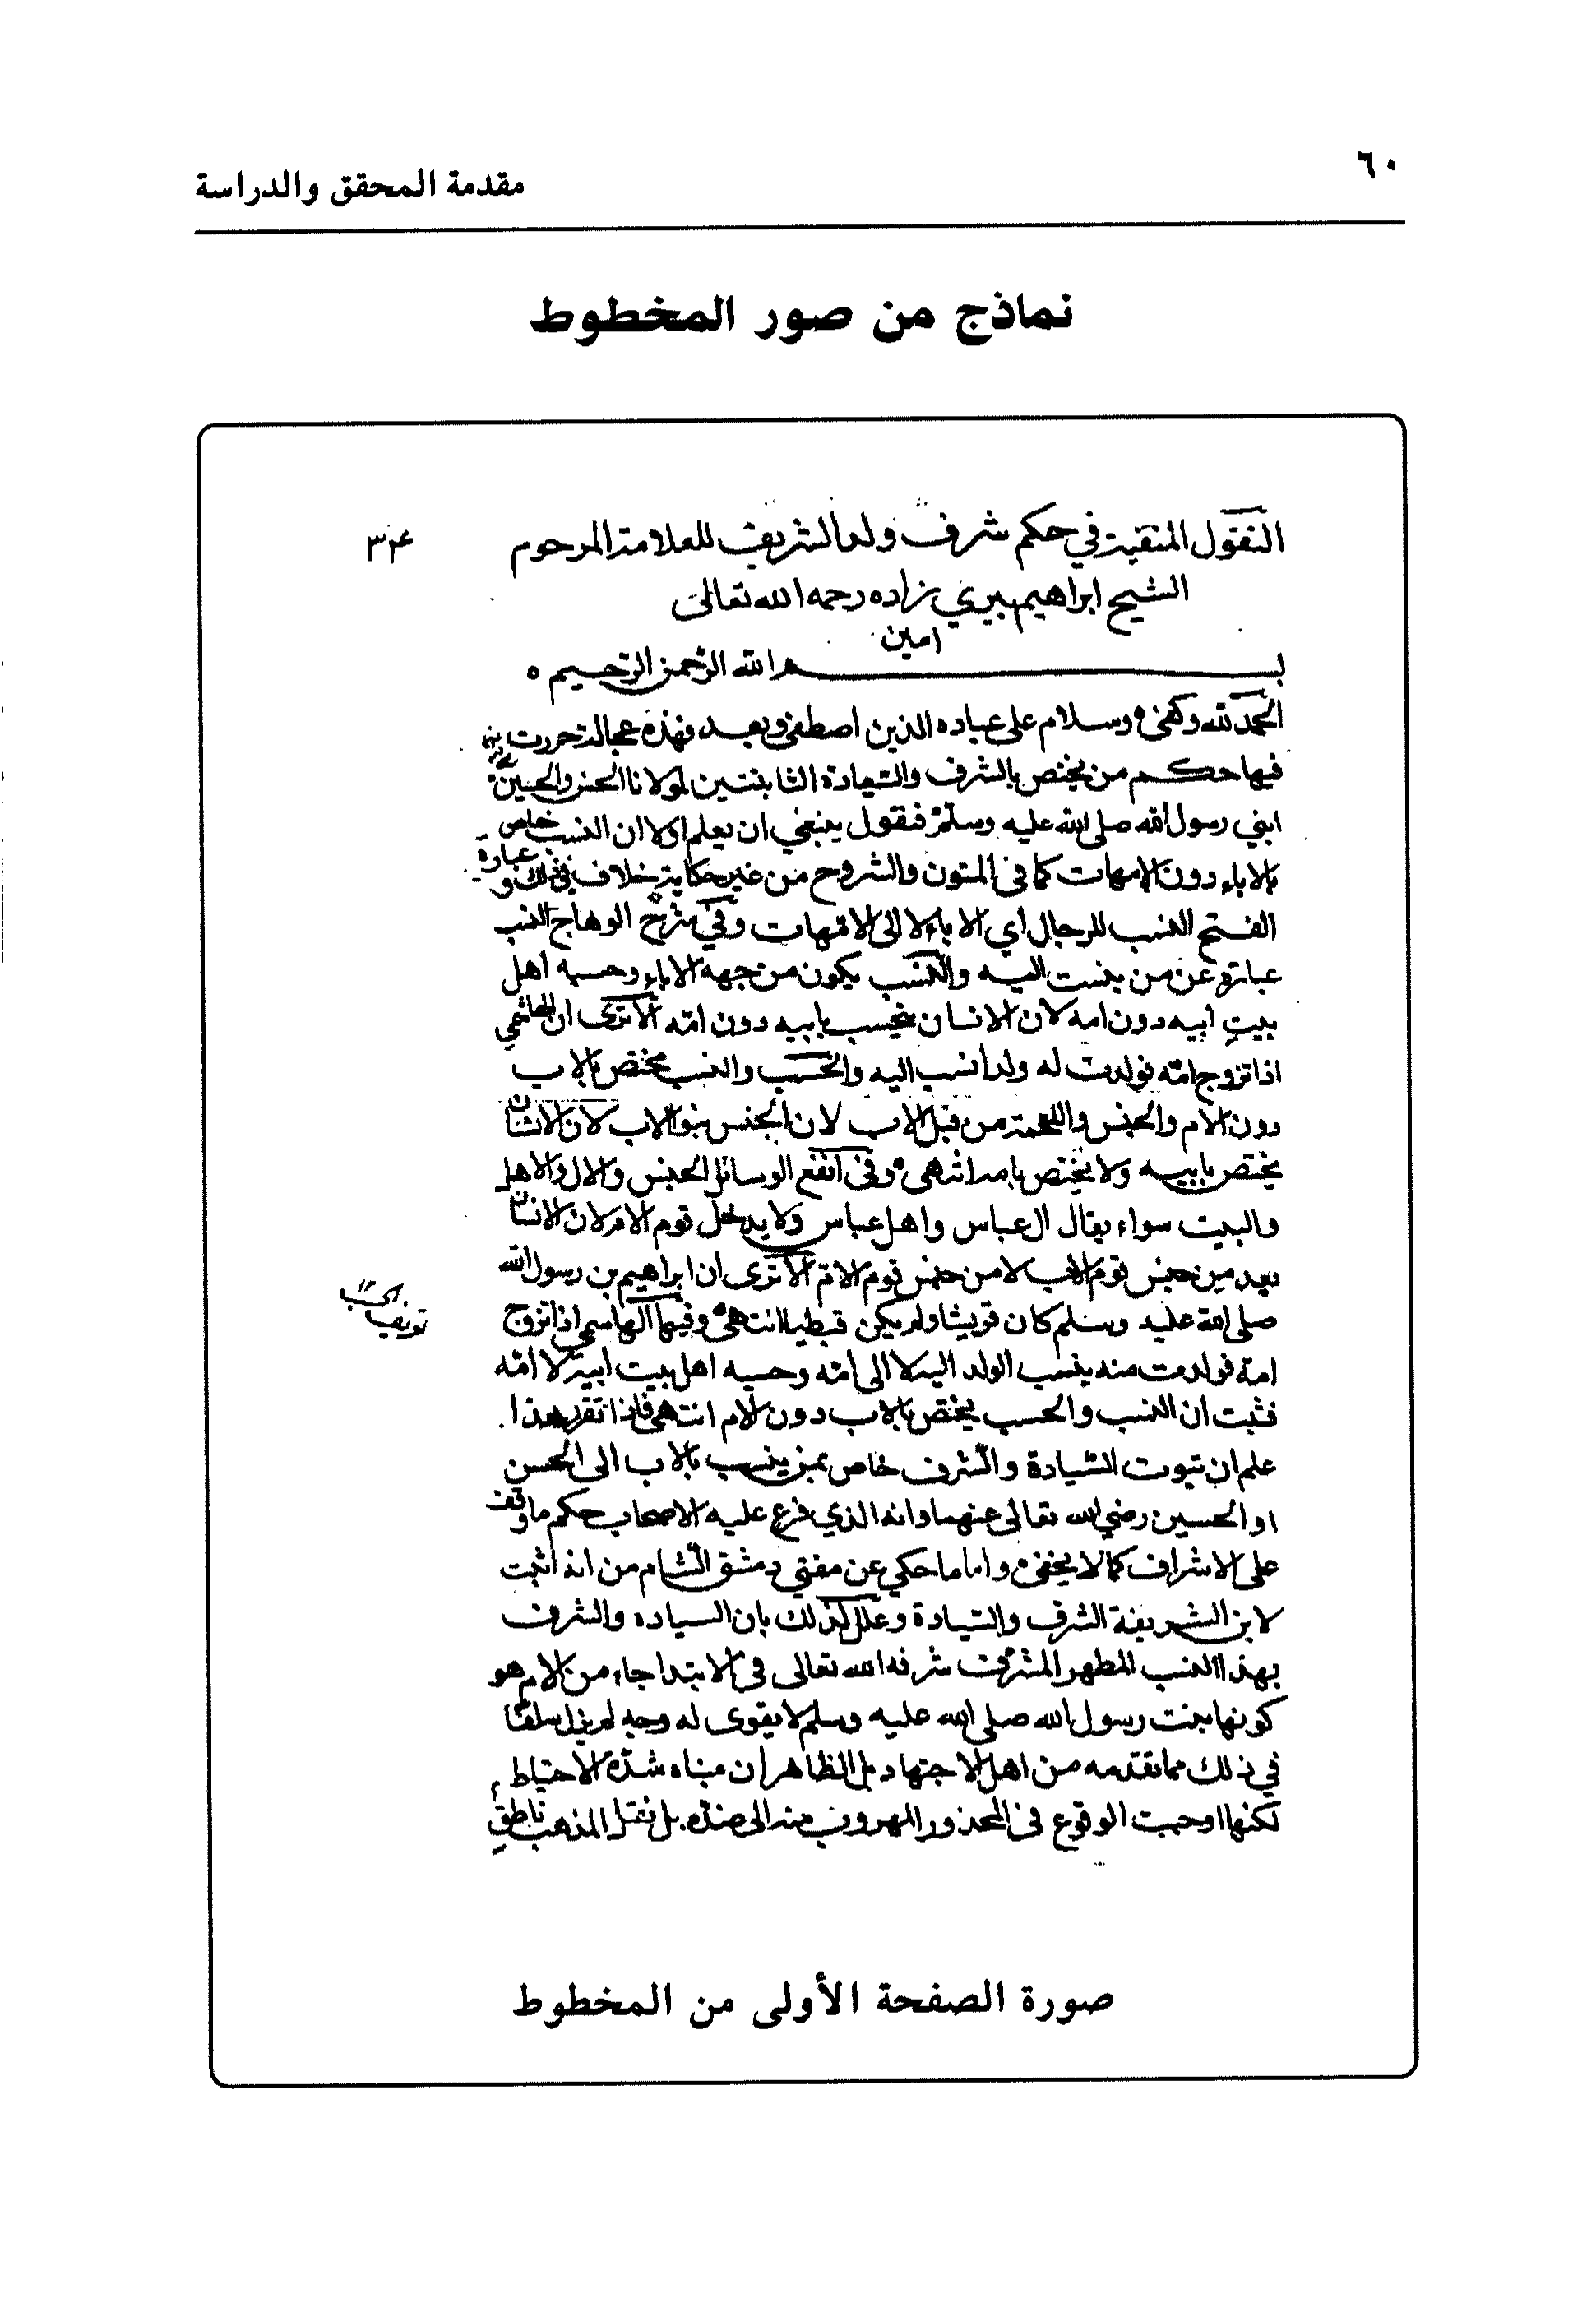 ٦٠
مقدمة المحقق والدراسة
نماذج من صور المخطوط
النقول المنقية في حكم شرف ولد الشريفة للعلامة المرحوم
الشيخ ابراهيم بيري زاده رحمه الله تعالى
امين
بسم الله الرحمن الرحيم
الحمد لله وكفى وسلام على عباده الذين اصطفى وبعد فهذه عجالة حررت
فيها حكم من يختص بالشرف والسيادة الثابتتين لمولانا الحسن والحسين
ابني رسول الله صلى الله عليه وسلم فنقول ينبغي ان يعلم اولا ان النسب خاص
بالاباء دون الامهات كما في المتون والشروح من غير حكاية خلاف في ذلك وعبارة
الفتح النسب للرجال اي الاباء لا الى الامهات وفي شرح الوهاج النسب
عبارة عن من ينسب اليه والنسب يكون من جهة الاباء وحسبه اهل
بيت ابيه دون امه لان الانسان يتحسب بابيه دون امه الا ترى ان الهاشمي
اذا تزوج امة فولدت له ولدا نسب اليه والحسب والنسب مختص بالاب
دون الام والجنس واللحمة من قبل الاب لان الجنس بنو الاب لان الانسان
يختص بابيه ولا يختص بامه انتهى وفي انفع الوسائل الجنس والال والاهل
والبيت سواء يقال ال عباس واهل عباس ولا يدخل قوم الام لان الانسان
يعد من جنس قوم الاب لا من جنس قوم الام الا ترى ان ابراهيم بن رسول الله
صلى الله عليه وسلم كان قريشا ولم يكن قبطيا انتهى وفيها الهاشمي اذا تزوج
امة فولدت منه ينسب الولد اليه لا الى امه وحسبه اهل بيت ابيه لا امه
فثبت ان النسب والحسب يختص بالاب دون الام انتهى فاذا تقرر هذا
علم ان ثبوت السيادة والشرف خاص بمن ينسب بالاب الى الحسن
او الحسين رضي الله تعالى عنهما وانه الذي فرع عليه الاصحاب حكم ما وقف
على الاشراف كما لا يخفى واما ما حكي عن مفتي دمشق الشام من انه اثبت
لابن الشريفة الشرف والسيادة وعلل لذلك بان السياده والشرف
بهذا النسب المطهر المشرف شرفه الله تعالى في الابتدا جاء من الام هو
كونها بنت رسول الله صلى الله عليه وسلم لا يقوى له وجه لم يزل سلفا
في ذلك مما تقدمه من اهل الاجتهاد بل الظاهر ان مبناه شدة الاحتياط
لكنها اوجبت الوقوع في المحذور المهروب منه الى ضده بل نقل المذهب ناطق
تعريف الحسب
صورة الصفحة الأولى من المخطوط